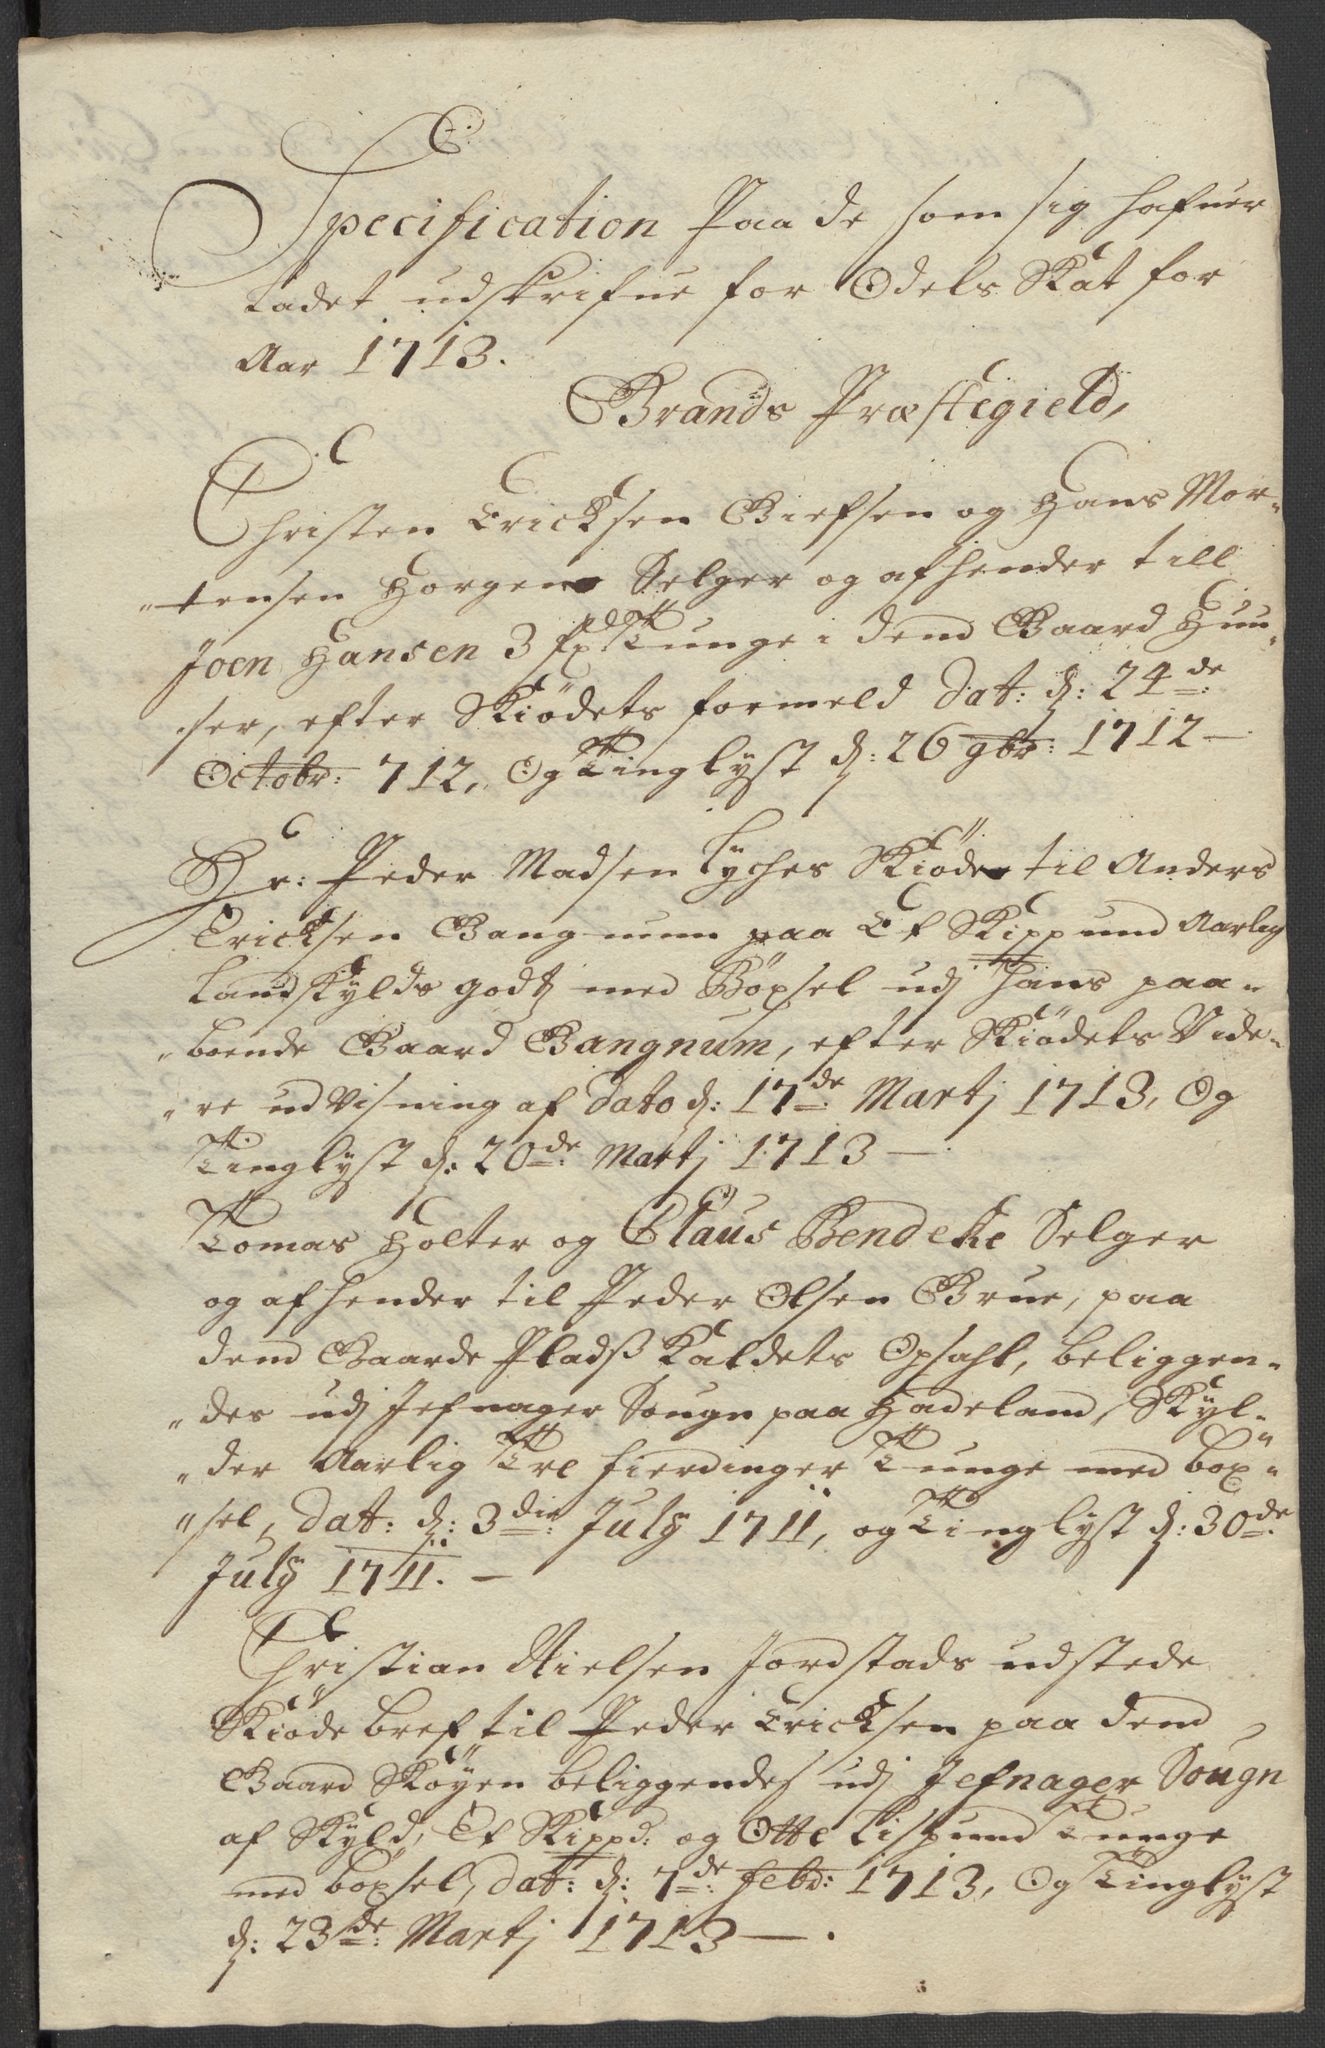 Specification Paa de som sig hafuer
ladet udskrifue for Odels Skat for
Aar 1713.
Brands Præstegield,
Christen Ericksen Giefsen og Hans Mor-
tensen Horgen Selger og afhender till
Joen Hansen 3 frd Tunge i dend Gaard Huu-
ser, efter Skiödets formeld dat: d: 24de
Octobr: 712, Og Tinglyst d: 26 9br: 1712 —
Hr: Peder Madsen Lyches Skiöder til Anders
Ericksen Gangnum paa Et Skippund Aarlig
Landskylds godtz med Böxsel udj hans paa-
boende Gaard Gangnum, efter Skiödets Vide-
re udVisning af dato d: 17de Martj 1713, Og
Tinglyst d: 20de Martj 1713 —
Tomas Holter og Claus Bendeke Selger
og afhender til Peder Olsen Brue, paa
dend Gaarde Pladß Kaldets Opsahl, beliggen-
des udj Jefnager Sougn paa Hadeland, Skyl-
der Aarlig Tre fierdinger Tunge med böx-
sel, dat: d: 3die July 1711, og Tinglyst d: 30de
July 1711. —
Christian Nielsen Jordstads udstede
Skiöde bref til Peder Ericksen paa dend
Gaard Sköyen beliggendes udj Jefnager Sougn
af Skyld, Et Skippd: og Otte Lispund Tunge
med böxsel, dat: d: 7de febr: 1713, Og Tinglyst
d: 23de Martj 1713 — .